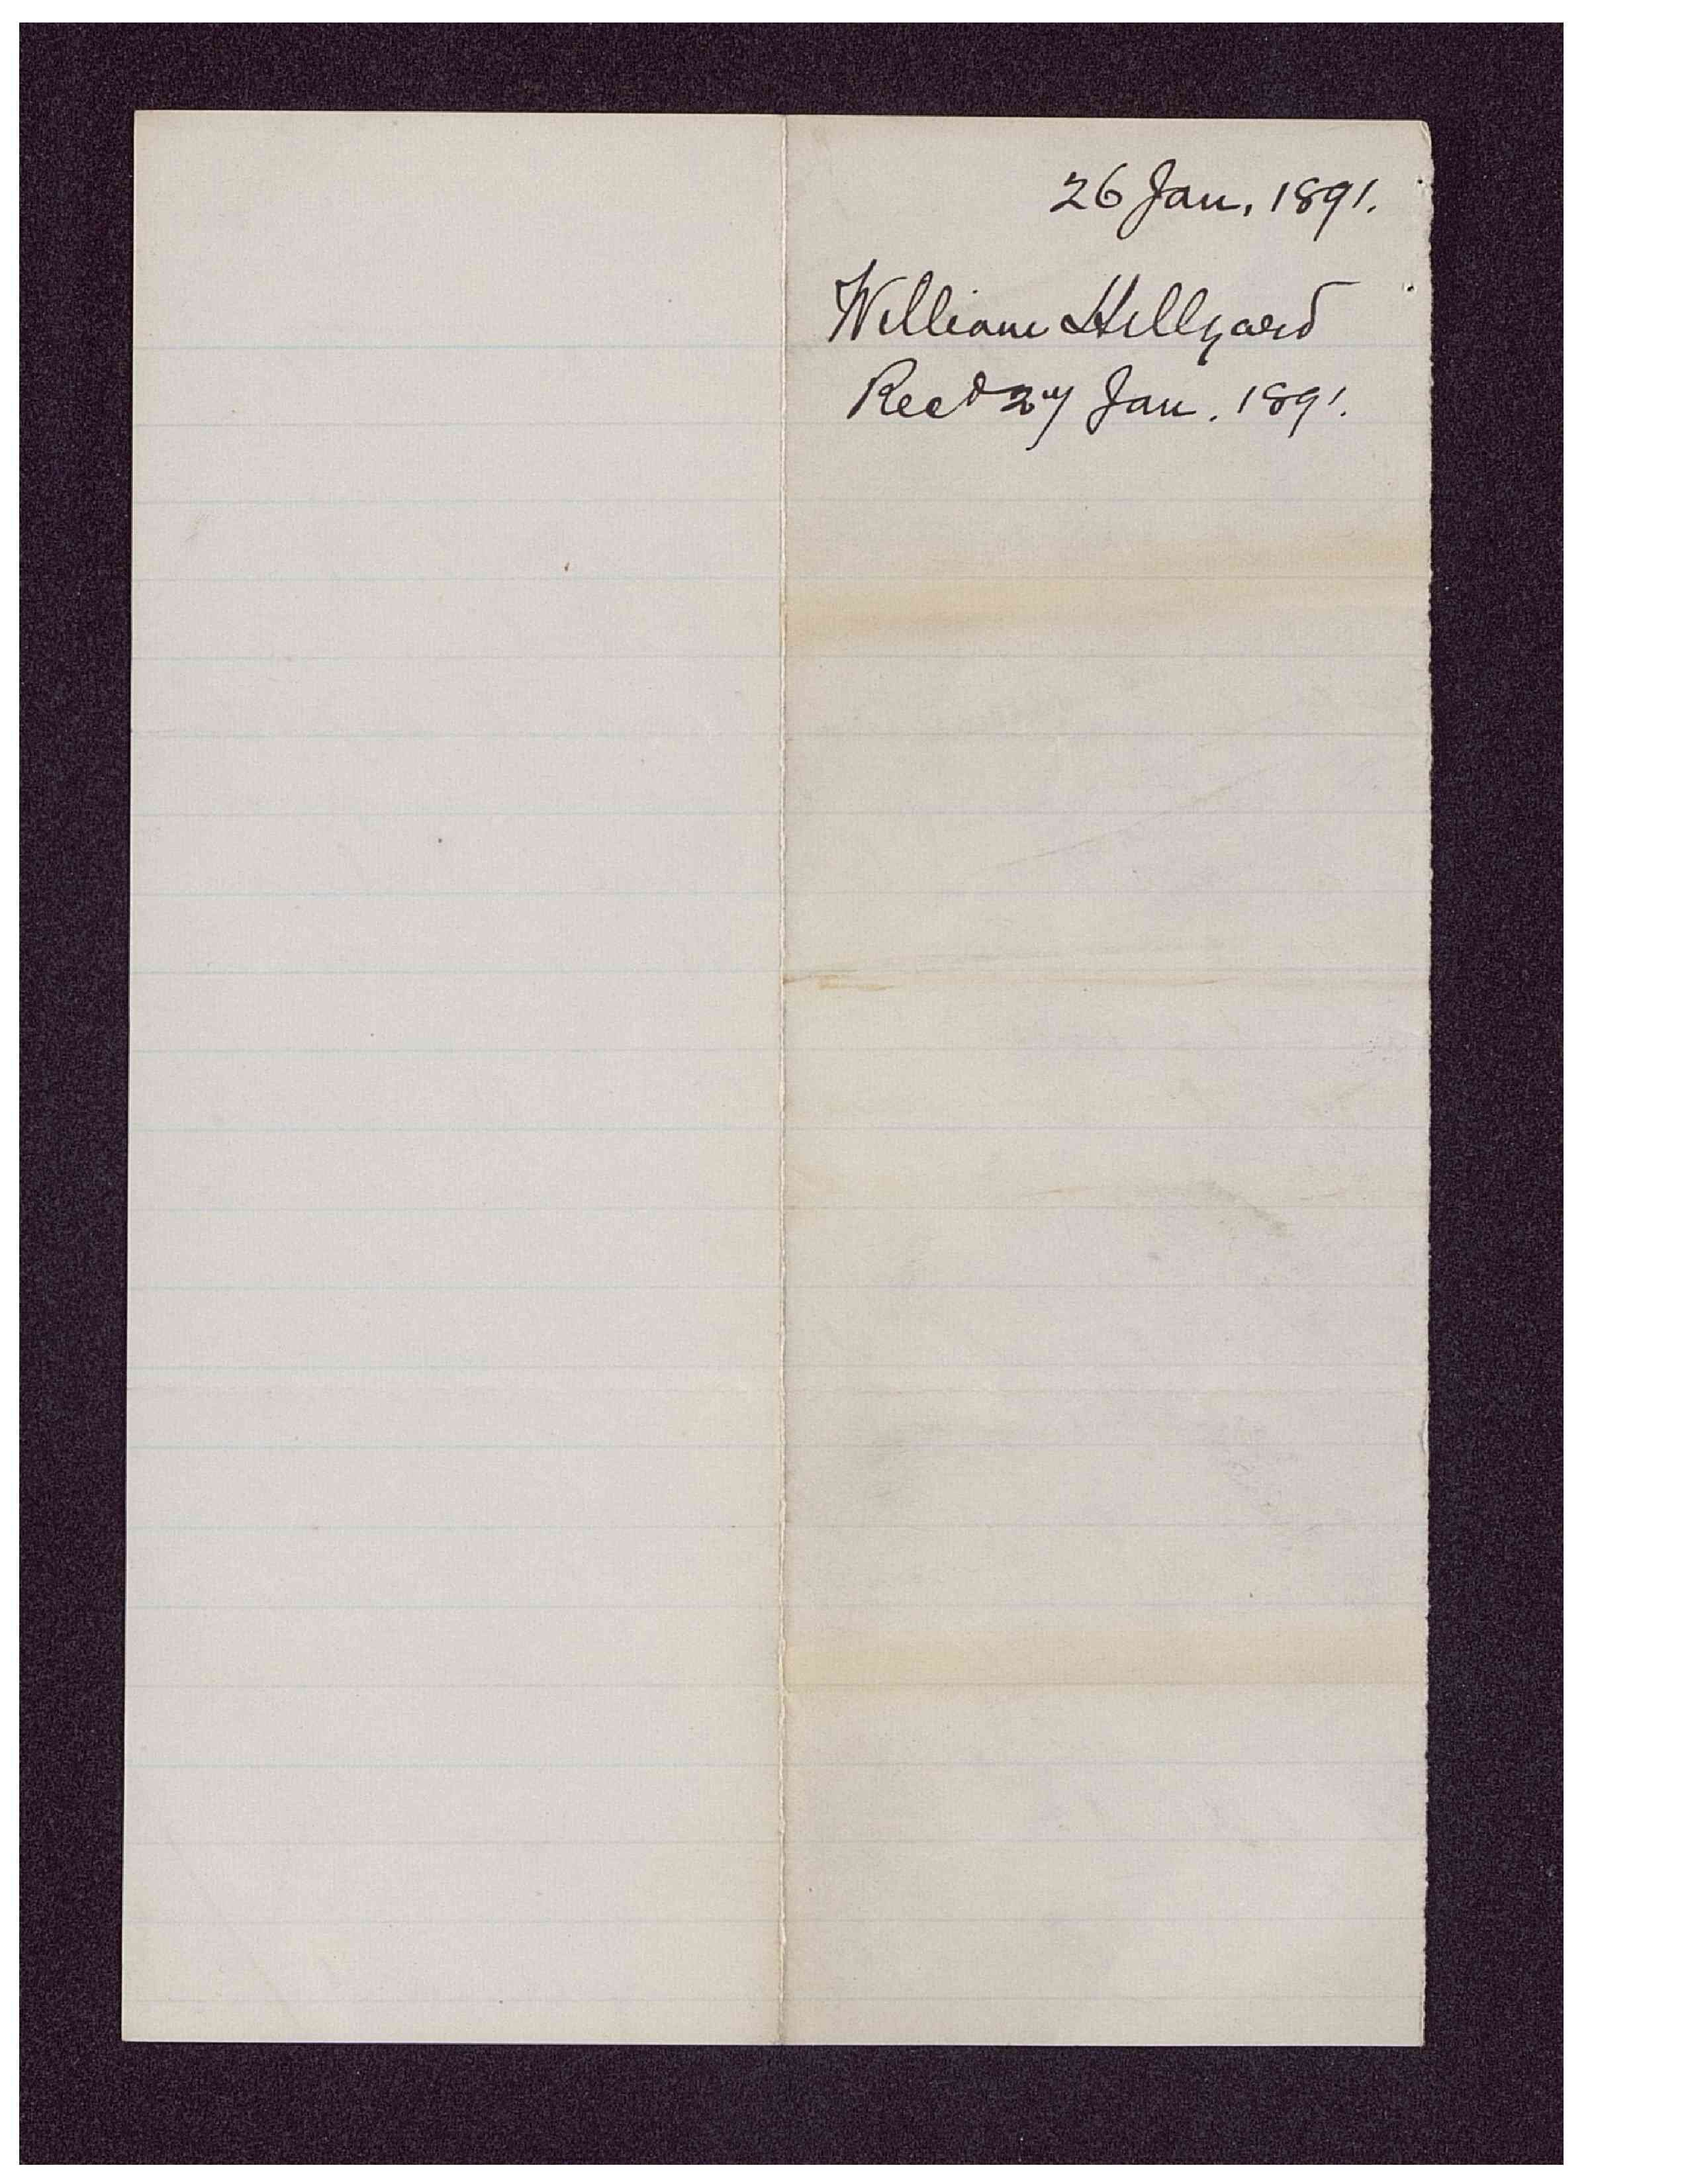 26 Jan, 1891.
William Hillyard
Recd 27 Jan. 1891.